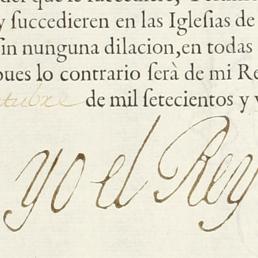 que le succediere,
y succedieren en las Iglesias de
sin nunguna dilacion, en todas
pues lo contrario serà de mi Re
ctubre de mil setecientos y v
yo el Rey